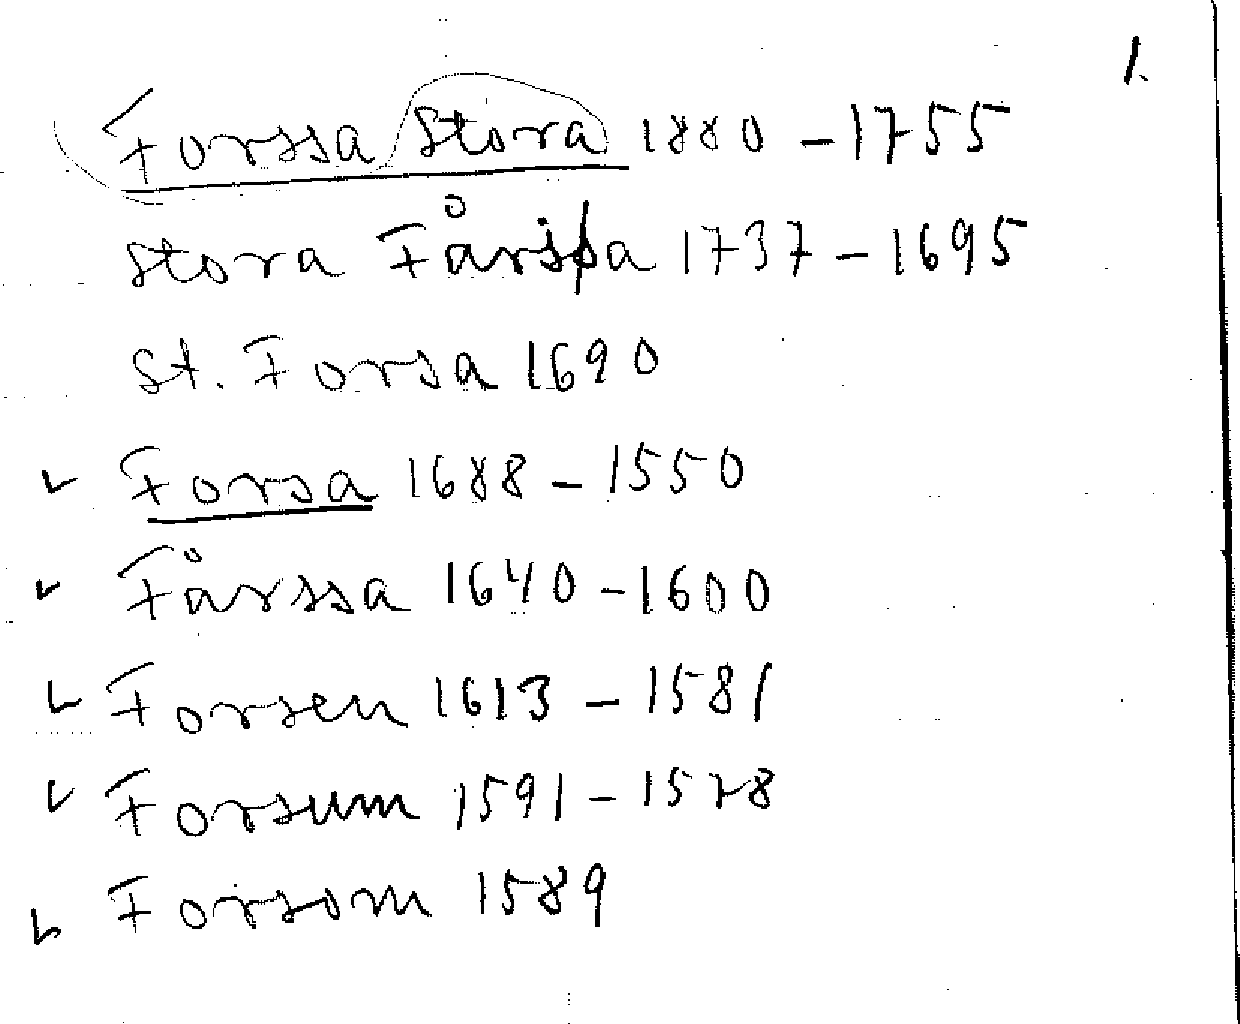 1.
Forssa Stora 1880 - 1755
Stora Fårssa 1737 - 1695
St. Forsa 1690
Forsa 1688 - 1550
Fårssa 1640 - 1600
Forsen 1613 - 1581
Forsum 1591 - 1578
Forsom 1589